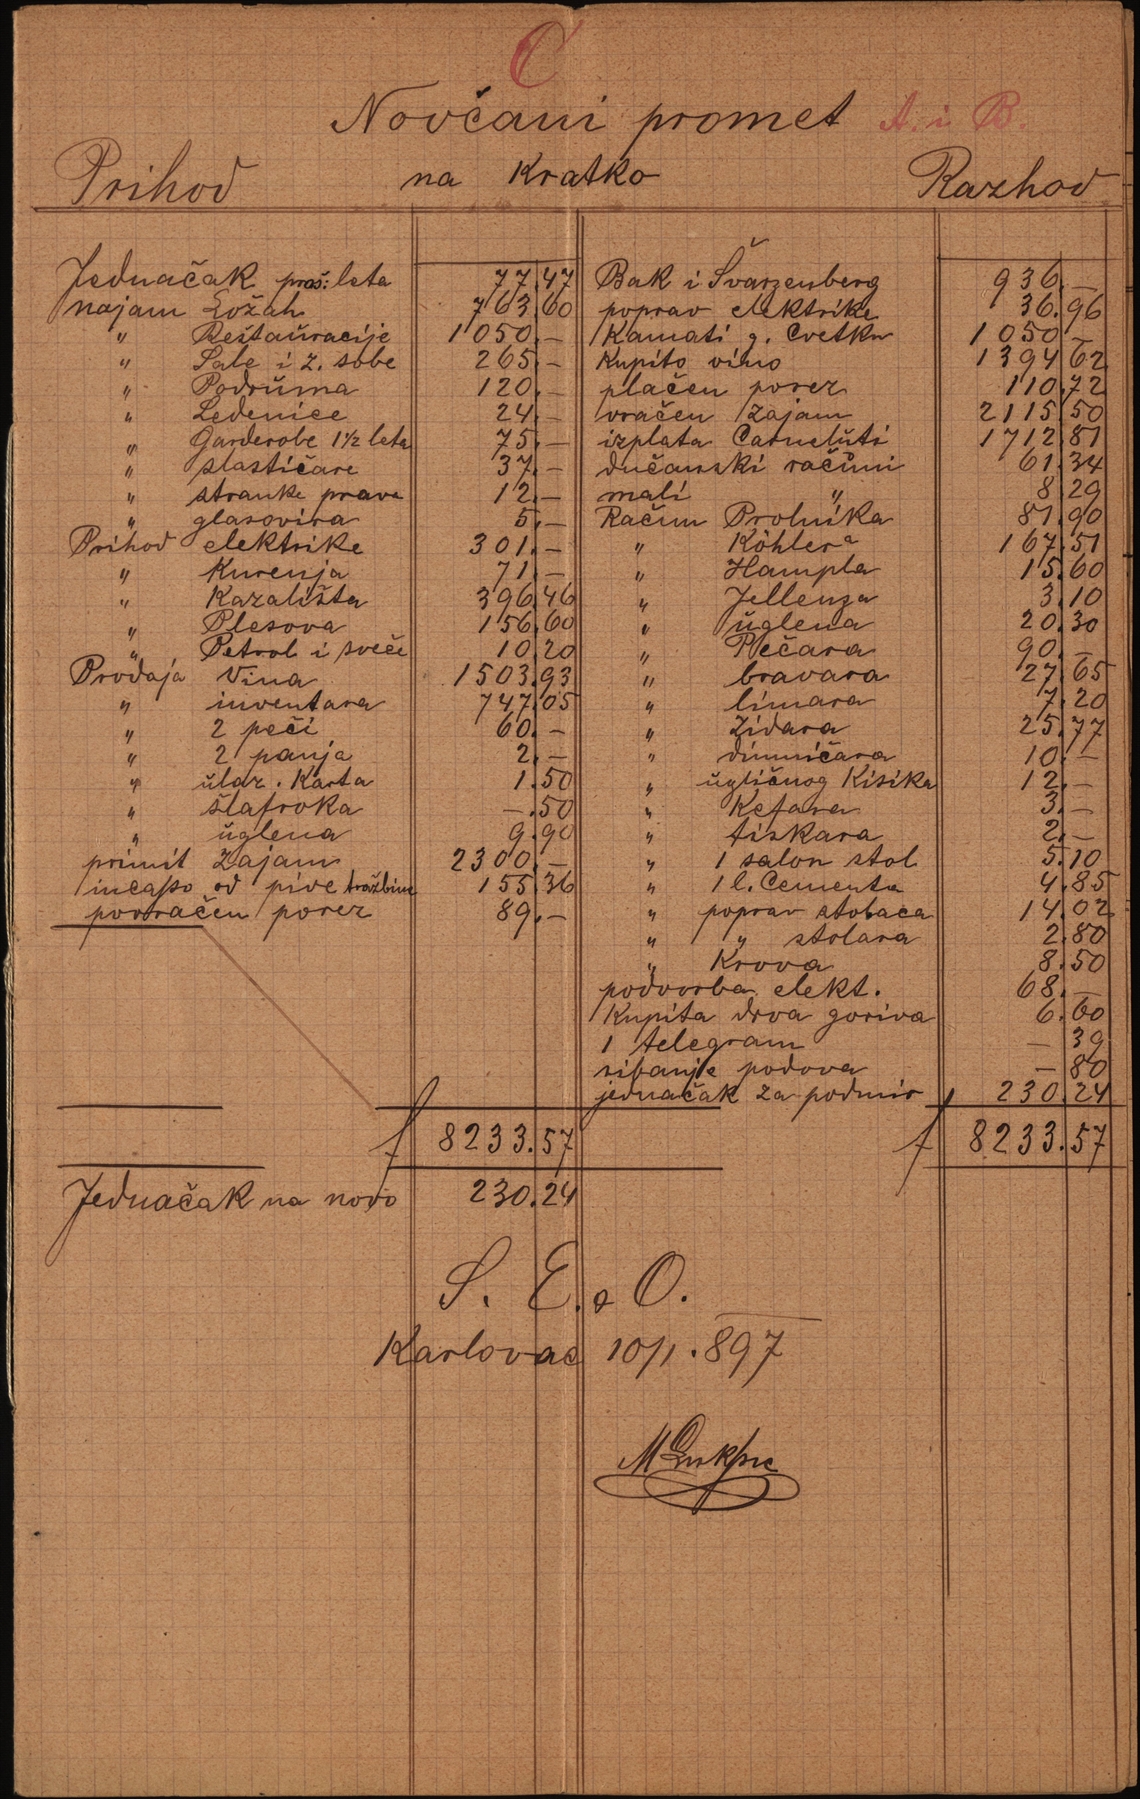 C
Novčani promet A. i B.
na Kratko
Prihod
Razhod
Jednačak proš: leta 77.47
najam Ložah 763.60
" Reštauracije 1050.–
" Sale i z. sobe 265.–
" Podruma 120.–
" Ledenice 24.–
" Garderobe 1½ leta 75.–
" slastičare 37.–
" stranke prave 12.–
" glasovira 5.–
Prihod elektrike 301.–
" Kurenja 71.–
" Kazališta 396.46
" Plesova 156.60
" Petrol i sveče 10.20
Prodaja Vina 1503.93
" inventara 747.05
" 2 peči 60.–
" 2 panja 2.–
" ulaz. Karta 1.50
" šlafroka –.50
" uglena 9.90
primit Zajam 2300.–
incasso od pive tražbine 155.36
povračen porez 89.–
f 8233.57
Jednačak na novo 230.24
Bak i Švarzenberg 936.–
poprav elektrike 36.96
Kamati g. Cvetku 1050.–
Kupito vino 1394.62
plačen porez 110.72
vračen zajam 2115.50
izplata Carneluti 1712.81
dučanski računi 61.34
mali " 8.29
Račun Prolnika 81.90
" Köhlera 167.51
" Hampla 15.60
" Jellenza 3.10
" uglena 20.30
" Pečara 90.–
" bravara 27.65
" limara 7.20
" Zidara 25.77
" dimničara 10.–
" ugličnog Kisika 12.–
" Kefara 3.–
" tiskara 2.–
" 1 salon stol 5.10
" 1 l. Cementa 4.85
" poprav stolaca 14.02
" " stolara 2.80
" Krova 8.50
podvorba elekt. 68.–
Kupita drva goriva 6.60
1 telegram –39
ribanje podova –80
jednačak za podmir 230.24
f 8233.57
S. E. & O.
Karlovac 10/1.897